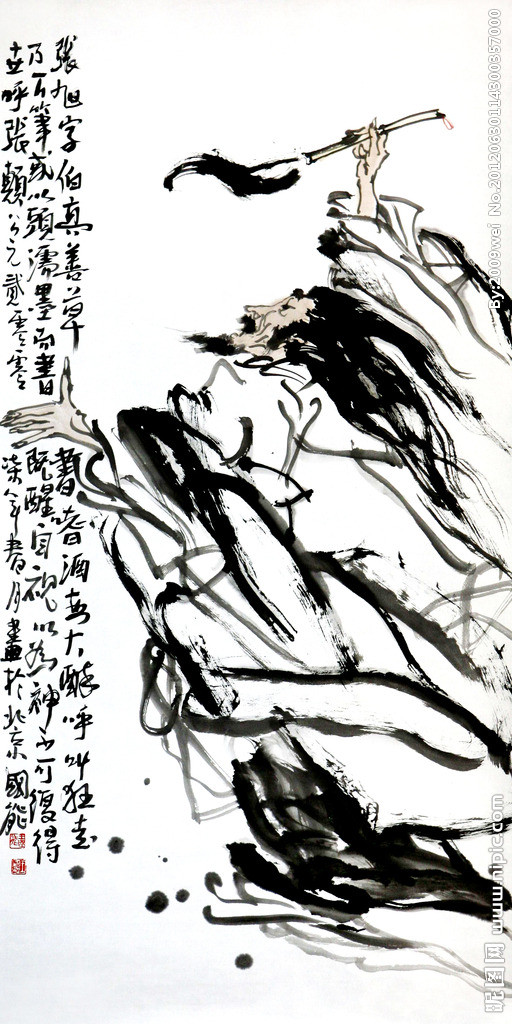 張旭字伯真善草書嗜酒每大醉呼叫狂走
乃下筆或以頭濡墨而書既醒自視以為神不可復得
世呼張顛公元貳零零柒年春月畫於北京國能
By:2009wei No.20120630114300357000
昵图网 www.nipic.com